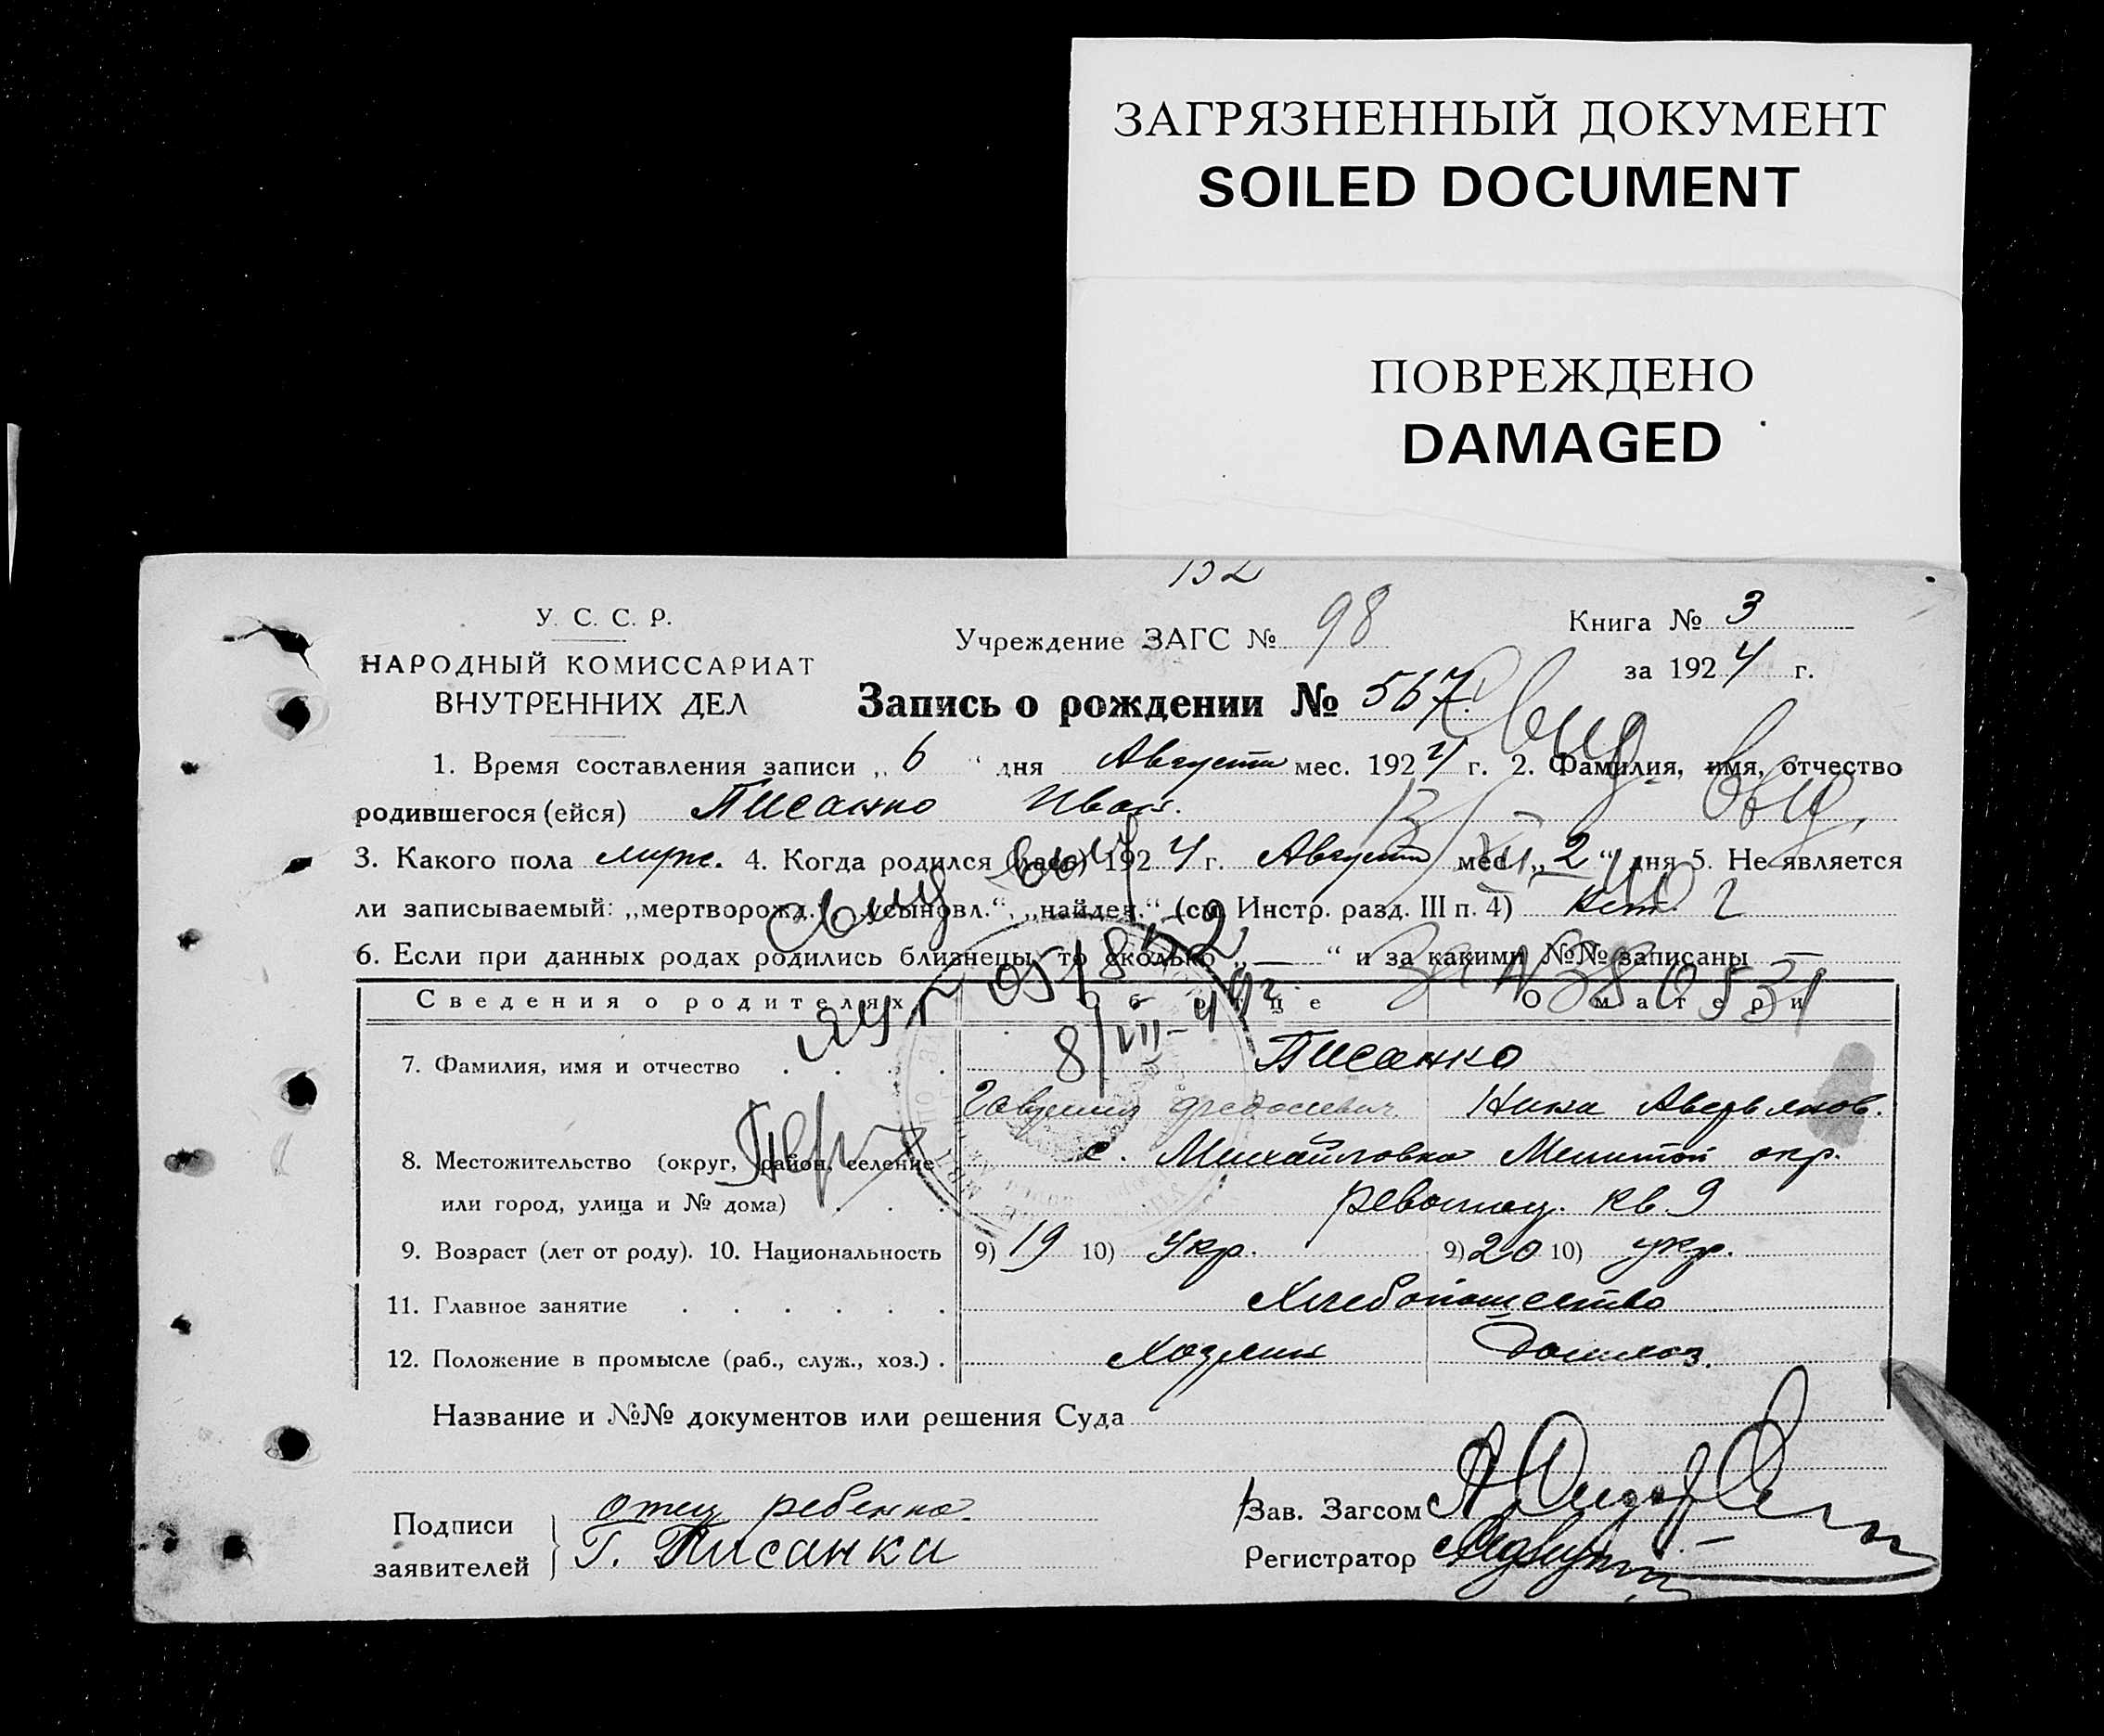 ЗАГРЯЗНЕННЫЙ ДОКУМЕНТ
SOILED DOCUMENT
ПОВРЕЖДЕНО
DAMAGED
У. С. С. Р.
НАРОДНЫЙ КОМИССАРИАТ
ВНУТРЕННИХ ДЕЛ
Учреждение ЗАГС № 98
Книга № 3
за 1924 г.
Запись о рождении № 567.
1. Время составления записи „6“ дня Августа мес. 1924 г. 2. Фамилия, имя, отчество
родившегося (ейся) Писанко Иван.
3. Какого пола муж. 4. Когда родился (лась) 1924 г. Августа мес. „2“ дня 5. Не является
ли записываемый: „мертворожд.“, „усыновл.“, „найден.“ (см. Инстр. разд. III п. 4) нет
6. Если при данных родах родились близнецы, то сколько „—“ и за какими №№ записаны —
Сведения о родителях Об отце О матери
7. Фамилия, имя и отчество Писанко
Федосиевич Нина Аверьянов.
8. Местожительство (округ, район, селение с. Михайловка Мелитоп окр.
или город, улица и № дома) кв. 9
9. Возраст (лет от роду). 10. Национальность 9) 19 10) Укр. 9) 20 10) укр.
11. Главное занятие Хлебопашество
12. Положение в промысле (раб., служ., хоз.) Хозяин Домохоз.
Название и №№ документов или решения Суда
Подписи заявителей отец ребенка
Г. Писанки
Зав. Загсом
Регистратор